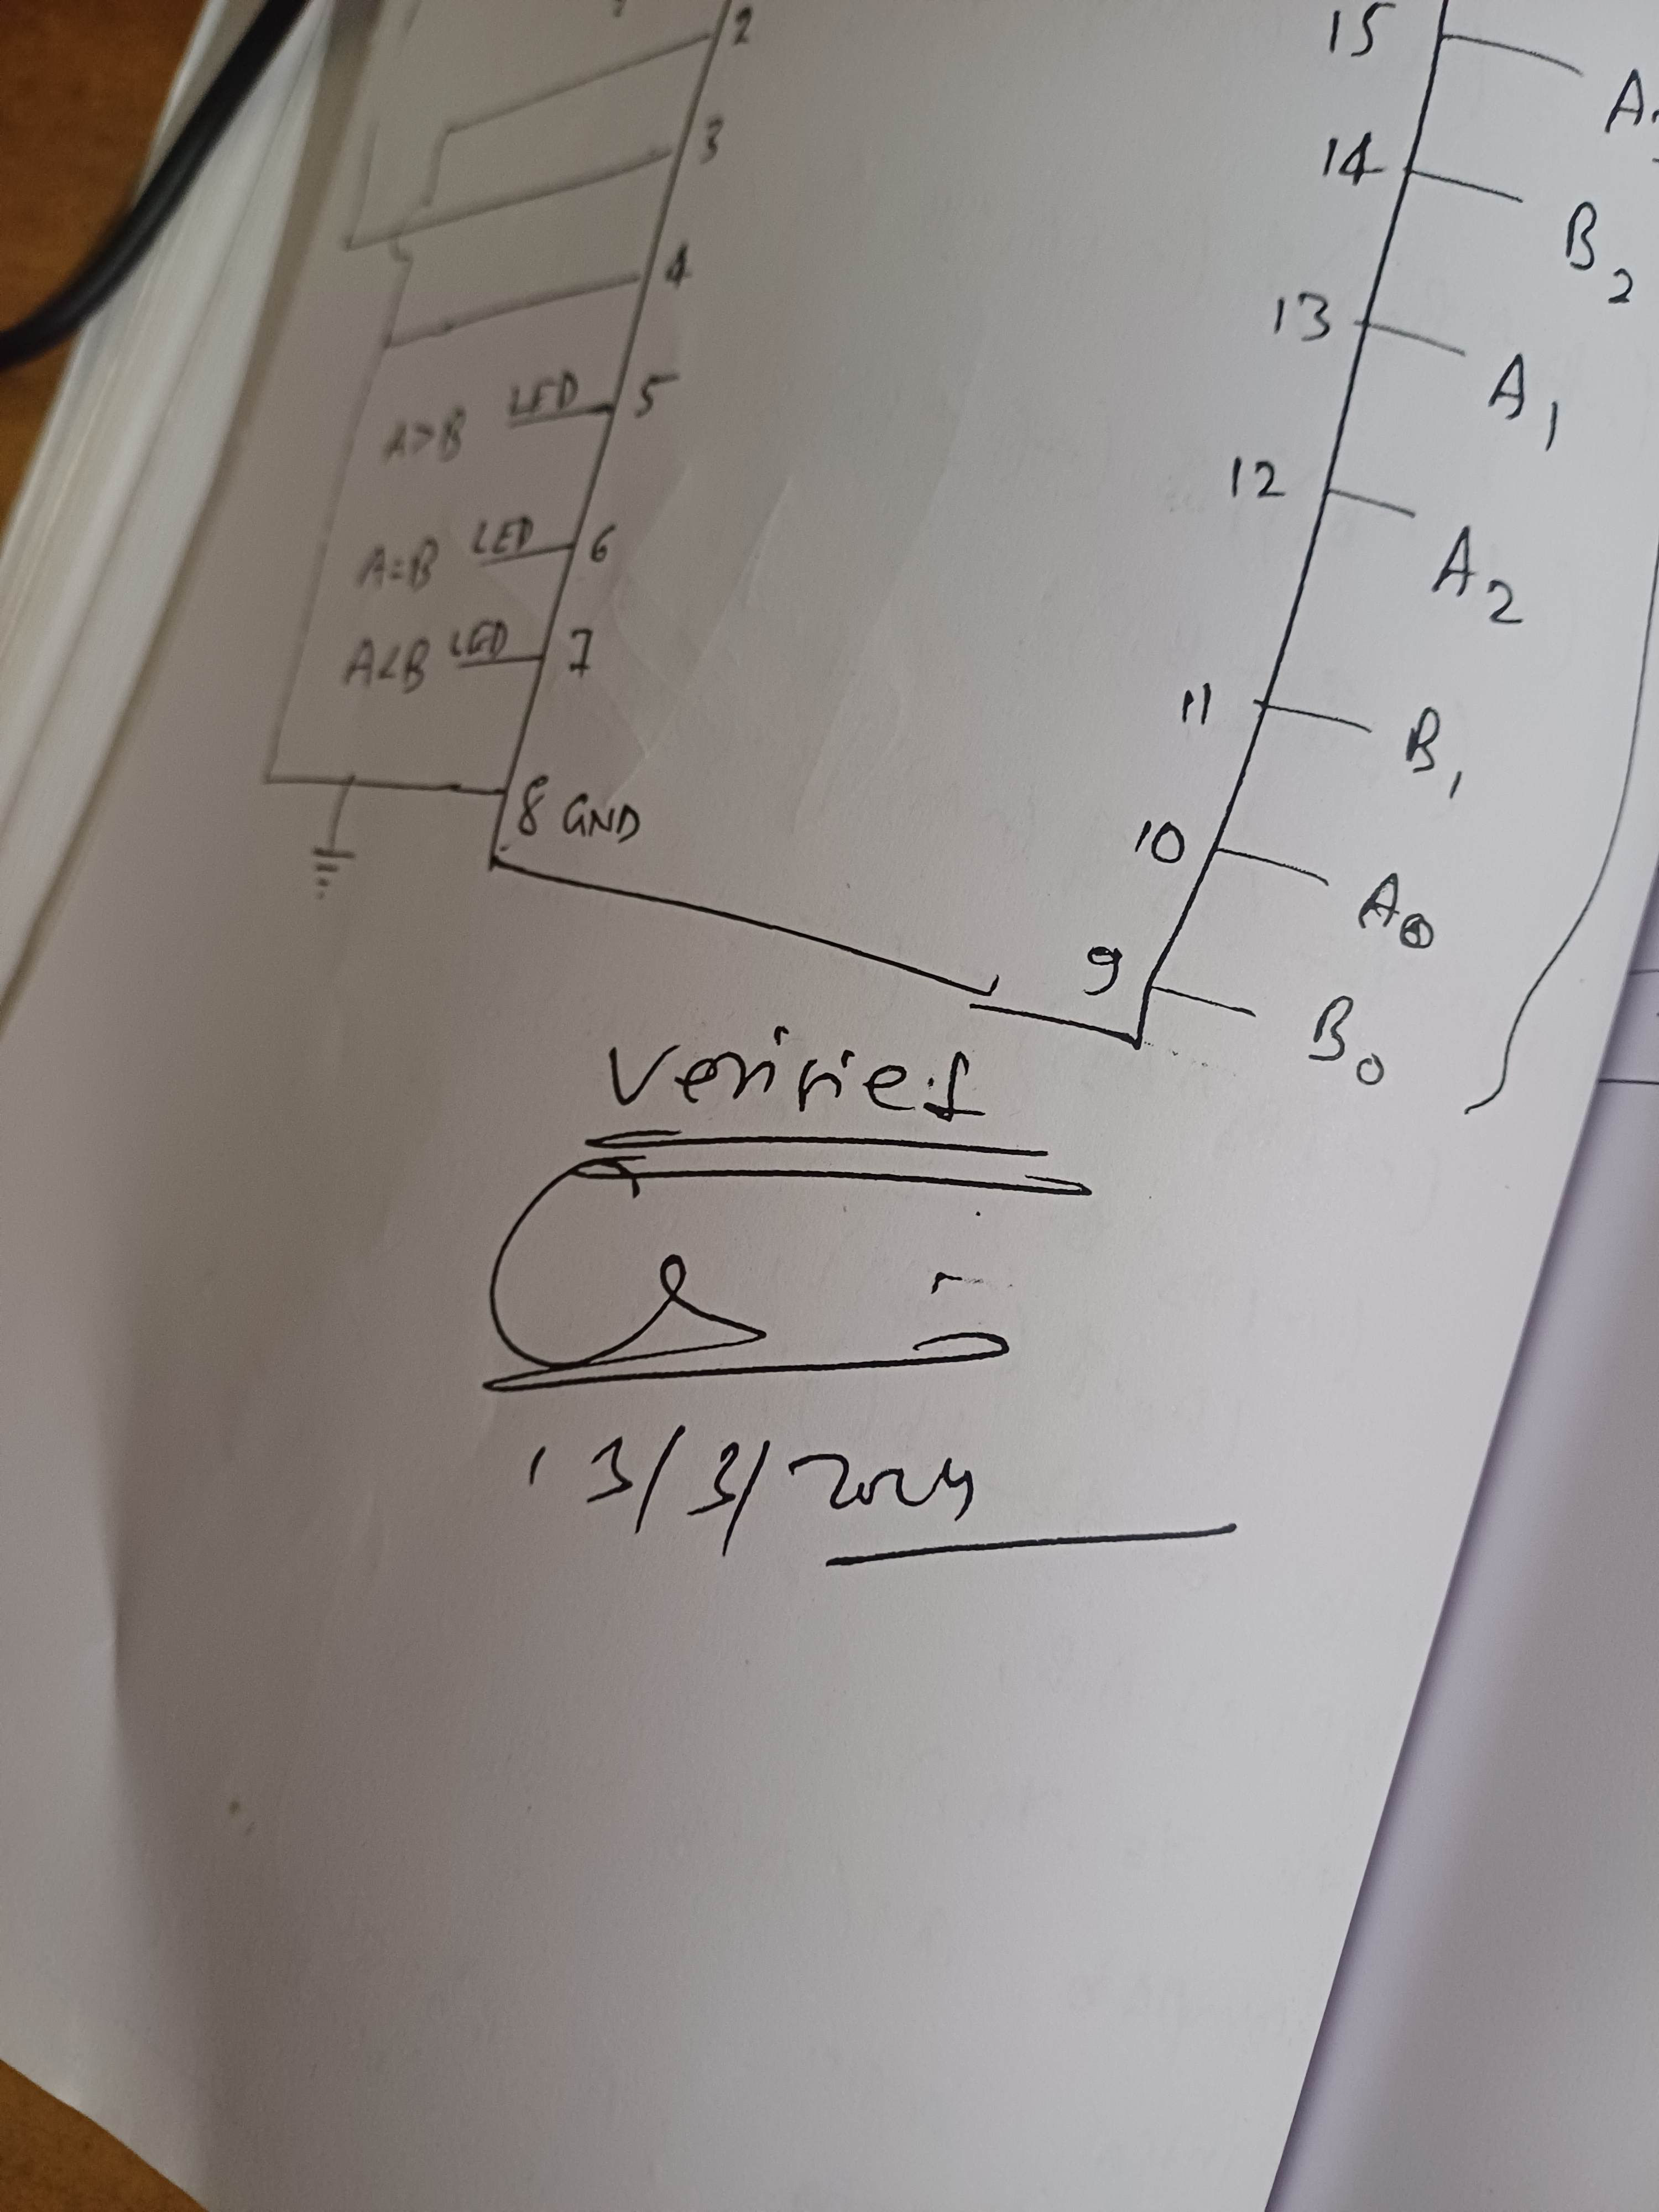 2
3
4
A>B LED 5
A=B LED 6
A<B LED 7
8 GND
15
14 B2
13 A1
12 A2
11 B1
10 A0
9 B0
Verified
13/3/2024